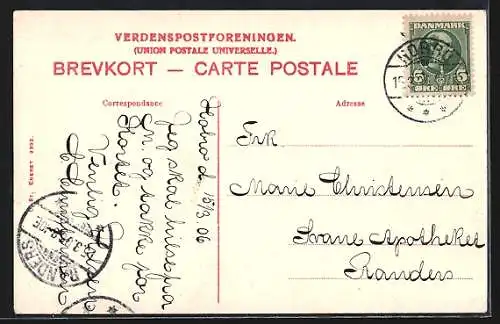 VERDENSPOSTFORENINGEN.
(UNION POSTALE UNIVERSELLE.)
BREVKORT — CARTE POSTALE
Correspondance
Adresse
DANMARK
5 5
ØRE ØRE
HOBRO
Hobro d. 15/3 06
Jeg skal hilse fra
En. og takke for
Kortet.
Venlig Hilsen
Frk.
Marie Christensen
Svane Apotheket
Randers
RANDERS
Eneret